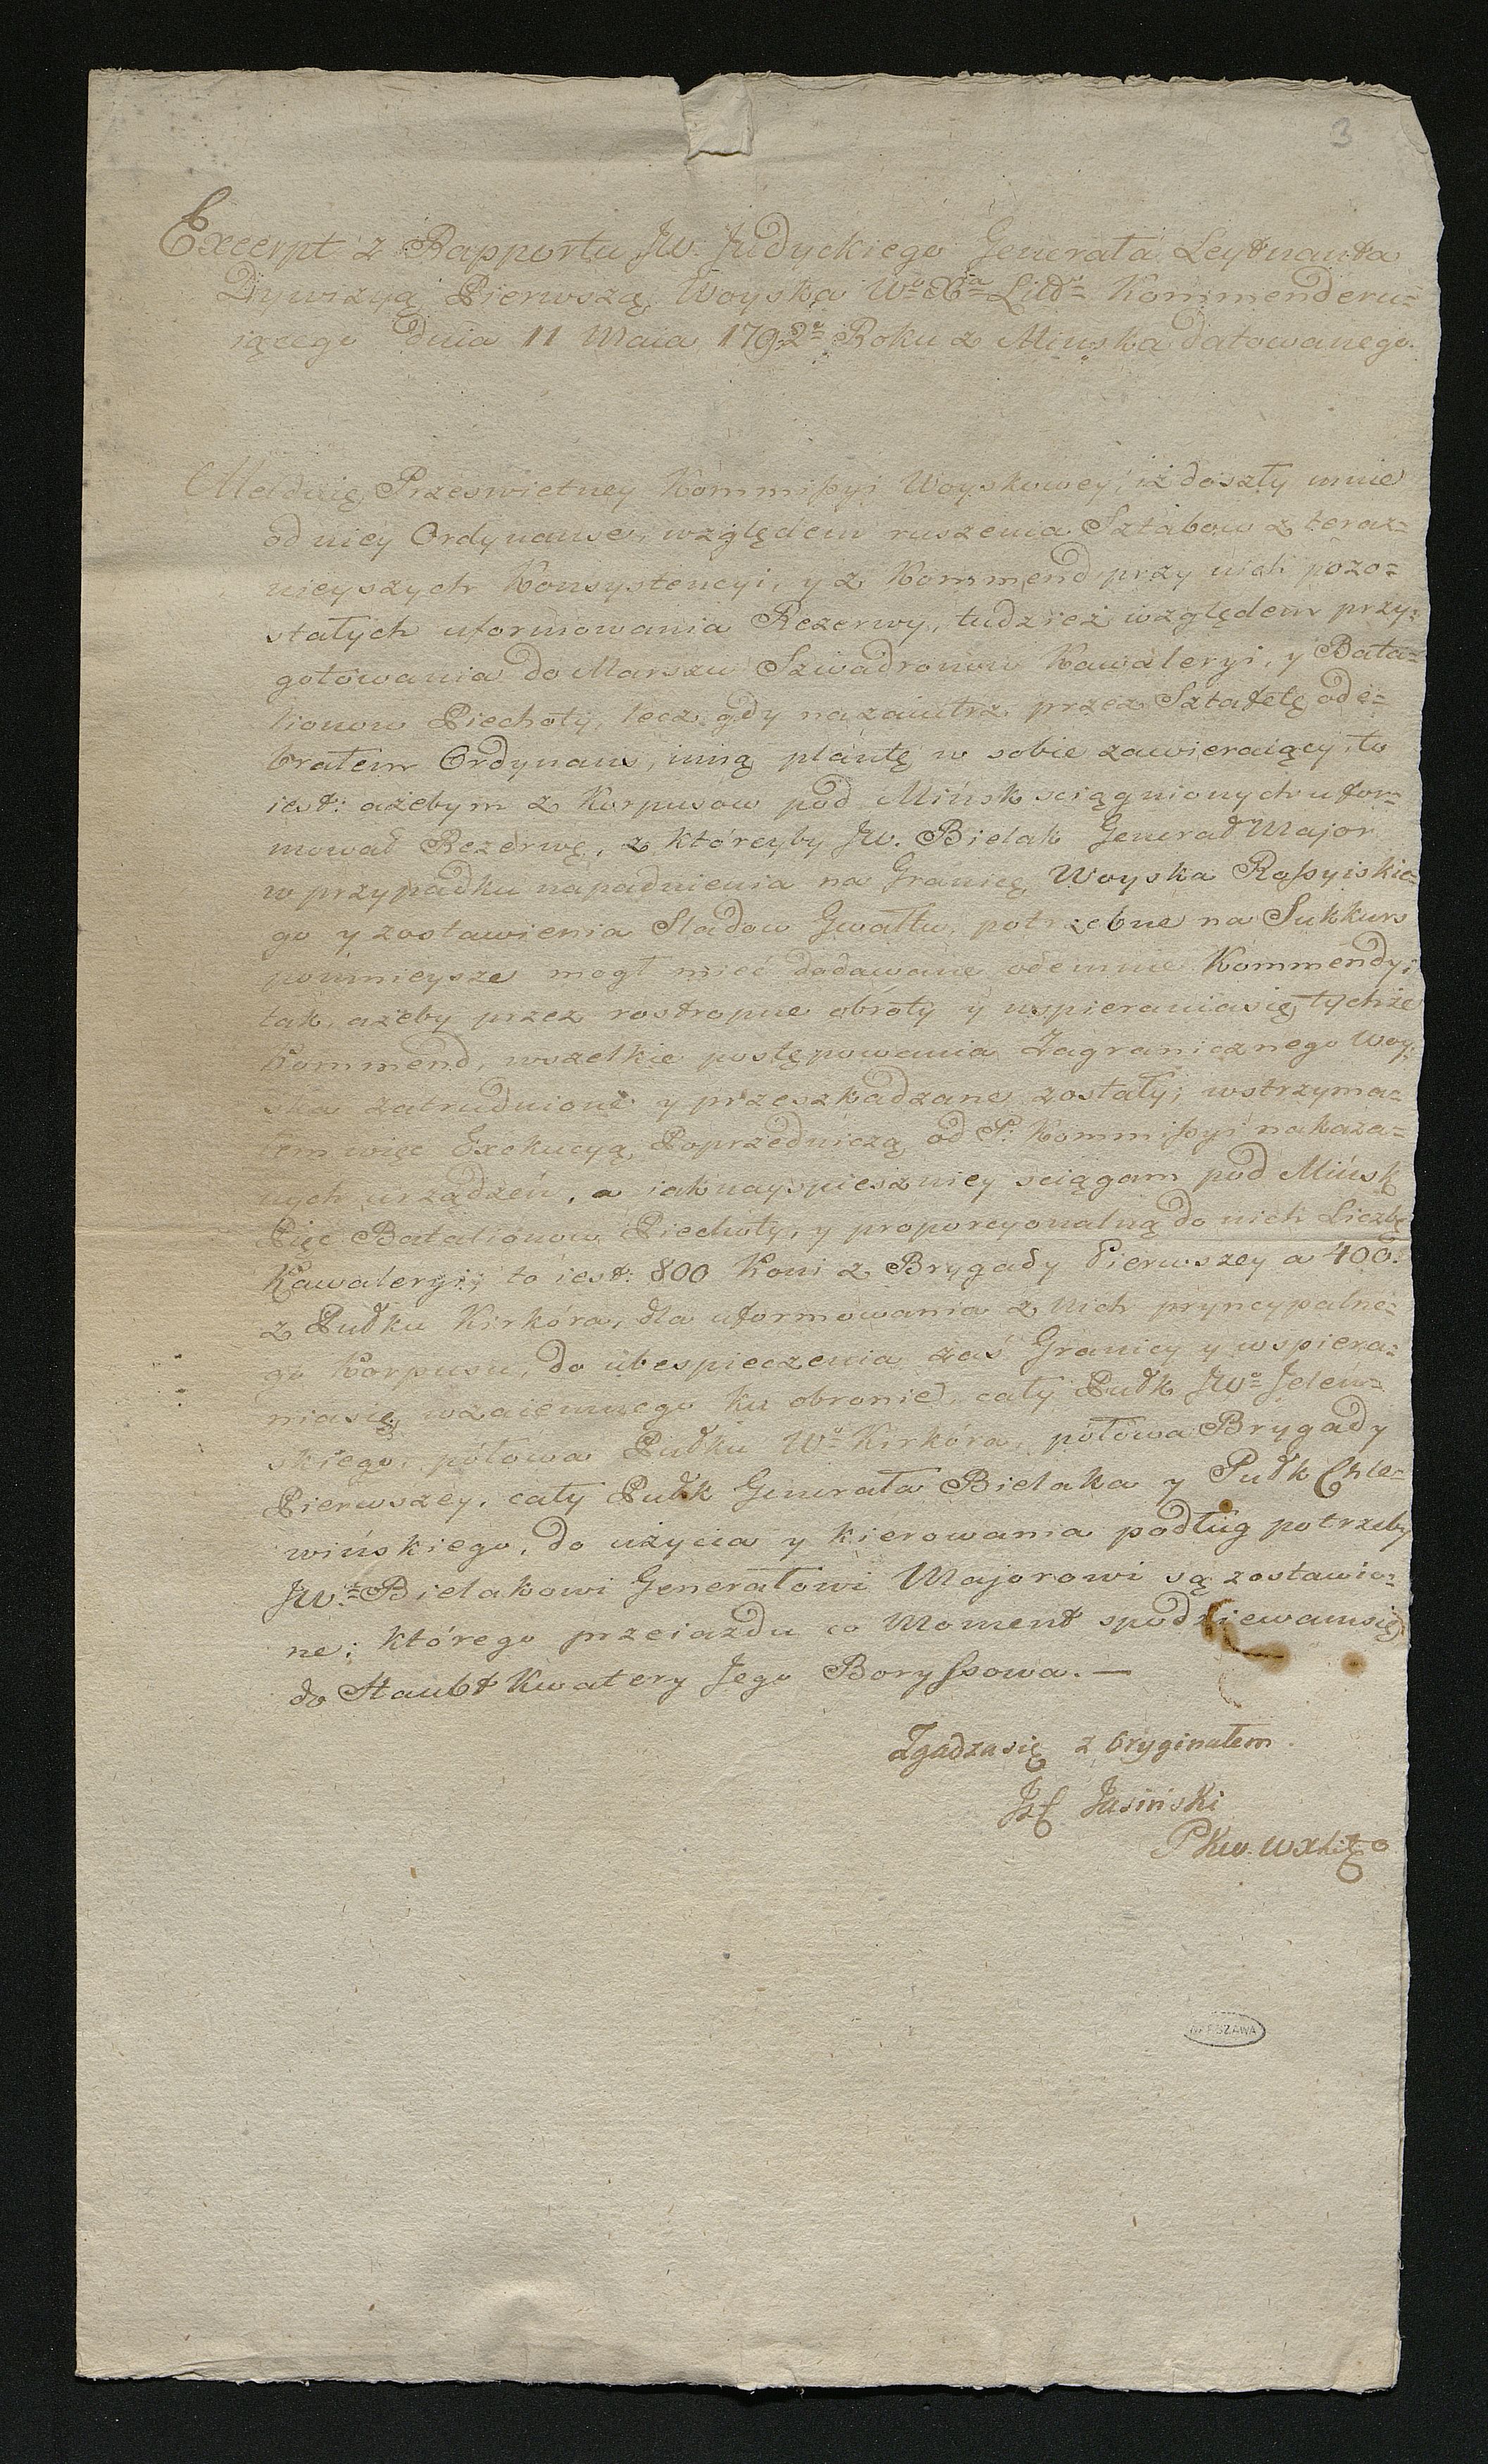 3
Excerpt z Rapportu JW. Judyckiego Generała Leytnanta
Dywizyą Pierwszą Woyska Wo Xa Litto Kommenderu=
iącego dnia 11 Maia 1792o Roku z Minska datowanego.
Melduię Prześwietney Kommißyi Woyskowey, iż doszły mnie
od niey Ordynanse, względem ruszenia Sztabow z teraz=
nieyszych Konsystencyi, y z Kommend przy nich pozo=
stałych uformowania Rezerwy, tudzież względem przy=
gotowania do Marszu Szwadronow Kawaleryi, y Bata=
lionow Piechoty, lecz gdy nazaiutrz przez Sztafetę ode=
brałem Ordynans, inną plantę w sobie zawieraiący, to
iest: ażebym z Korpusow pod Mińsk sciągnionych ufor=
mował Rezerwę, z któreyby JW. Bielak Generał Major
w przypadku napadnienia na Granicę Woyska Roßyiskie=
go y zostawienia Sladow Gwałtu, potrzebne na Sukkurs
pomnieysze mogł mieć dodawane odemnie Kommendy;
tak, ażeby przez rostropne obroty y wspieraniasię tychże
Kommend, wszelkie postępowania Zagranicznego Woy=
ska zatrudnione y przeszkadzane zostały; wstrzyma=
łem więc Exekucyą Poprzedniczą od P. Kommißyi nakaza=
nych urządzeń, a iaknayspieszniey sciągam pod Mińsk
Pięć Batalionow Piechoty, y proporcyonalną do nich Liczbę
Kawaleryi; to iest: 800 Koni z Brygady Pierwszey a 400.
z Pułku Kirkóra, dla uformowania z nich pryncypalne=
go Korpusu, do ubespieczenia zaś Granicy y wspiera=
niasię wzaiemnego ku obronie, cały Pułk JWo Jelen=
skiego, połowa Pułku Wo Kirkóra, połowa Brygady
Pierwszey, cały Pułk Generała Bielaka y Pułk Chle=
wińskiego, do użycia y kierowania podług potrzeby
JW. Bielakowi Generałowi Majorowi są zostawio=
ne; którego przeiazdu co Moment spodziewamsię
do Staubt Kwatery Jego Boryssowa. —
Zgadzasię z Oryginałem.
Jasiński
WARSZAWA